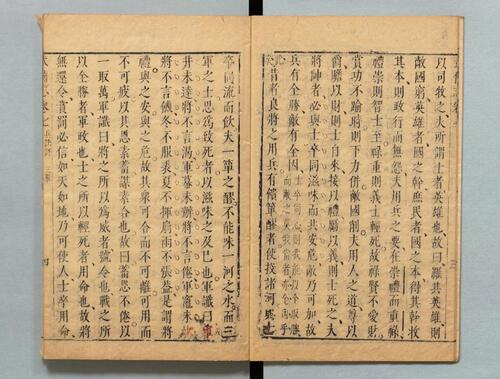 以司牧之夫所謂士者英雄也故曰羅其英雄則
敵國窮英雄者國之幹庶民者國之本得其幹收
其本則政行而無怨夫用兵之要在崇禮而重祿
禮崇則智士至祿重則義士輕死故祿賢不愛財
賞功不踰時則下力併敵國削夫用人之道尊以
爵贍以財則士自來接以禮勵以義則士死之夫
將帥者必與士卒同滋味而共安危敵乃可加故
兵有全勝敵有全因
昔者良將之用兵有饋簞醪者使投諸河與士
卒同流而飲夫一簞之醪不能味一河之水而三
軍之士思為致死者以滋味之及已也軍讖曰軍
井未達將不言渴軍幕未辦將不言倦軍竈未炊
將不言饑冬不服裘夏不揮扇雨不張蓋是謂將
禮與之安與之危故其眾可合而不可離可用而
不可疲以其恩素蓄謀素合也故曰蓄恩不倦以
一取萬軍讖曰將之所以為威者號令也戰之所
以全勝者軍政也士之所以輕死者用命也故將
無還令賞罰必信如天如地乃可使人士卒用命